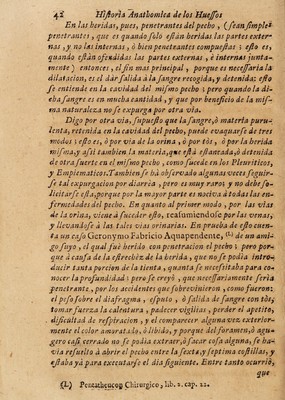 42 Historia Anathomica de los Huessos
En las heridas, pues, penetrantes del pecho, (sean simples
penetrantes, que es quando solo están heridas las partes exter-
nas, y no las internas, ò bien penetrantes compuestas; esto es,
quando están ofendidas las partes externas, è internas junta-
mente) entonces, el fin mas principal, porque es necessaria la
dilatacion, es el dàr salida à la sangre recogida, y detenida: esto
se entiende en la cavidad del mismo pecho; pero quando la di-
cha sangre es en mucha cantidad, y que por beneficio de la mis-
ma naturaleza no se expurga por otra via.
Digo por otra via, supuesto que la sangre, ò materia puru-
lenta, retenida en la cavidad del pecho, puede evaquarse de tres
modos; esto es, ò por via de la orina, ò por tòs, ò por la herida
misma, y assi tambien la materia, que està estancada, ò detenida
de otra suerte en el mismo pecho, como sucede en los Pleuriticos,
y Empiematicos. Tambien se hà observado algunas veces seguir-
se tal expurgacion por diarrea, pero es muy raro, y no debe so-
licitarse esta, porque por la mayor parte es nociva à todas las en-
fermedades del pecho. En quanto al primer modo, por las vias
de la orina, viene à suceder esto, reasumiendose por las venas,
y llevandose à las tales vias orinarias. En prueba de esto cuen-
ta un caso Geronymo Fabricio Aquapendente, (L) de un ami-
go suyo, el qual fuè herido con penetracion el pecho; pero por-
que à causa de la estrechèz de la herida, que no se podia intro-
ducir tanta porcion de la tienta, quanta se necessitaba para co-
nocer la profundidad; pero se creyò, que necessariamente sería
penetrante, por los accidentes que sobrevinieron, como fueron:
el peso sobre el diafragma, esputo, ò salida de sangre con tòs;
tomar fuerza la calentura, padecer vigilias, perder el apetito,
dificultad de respiracion, y el comparecer alguna vez exterior-
mente el color amoratado, ò libido, y porque del foramen, ò agu-
gero casi cerrado no se podia extraer, ò sacar cosa alguna, se ha-
via resuelto à abrir el pecho entre la sexta, y septima costillas, y
estaba yà para executarse el dia siguiente. Entre tanto ocurriò,
que
(L) Pentatheucon Chirurgico, lib. 2. cap. 22.